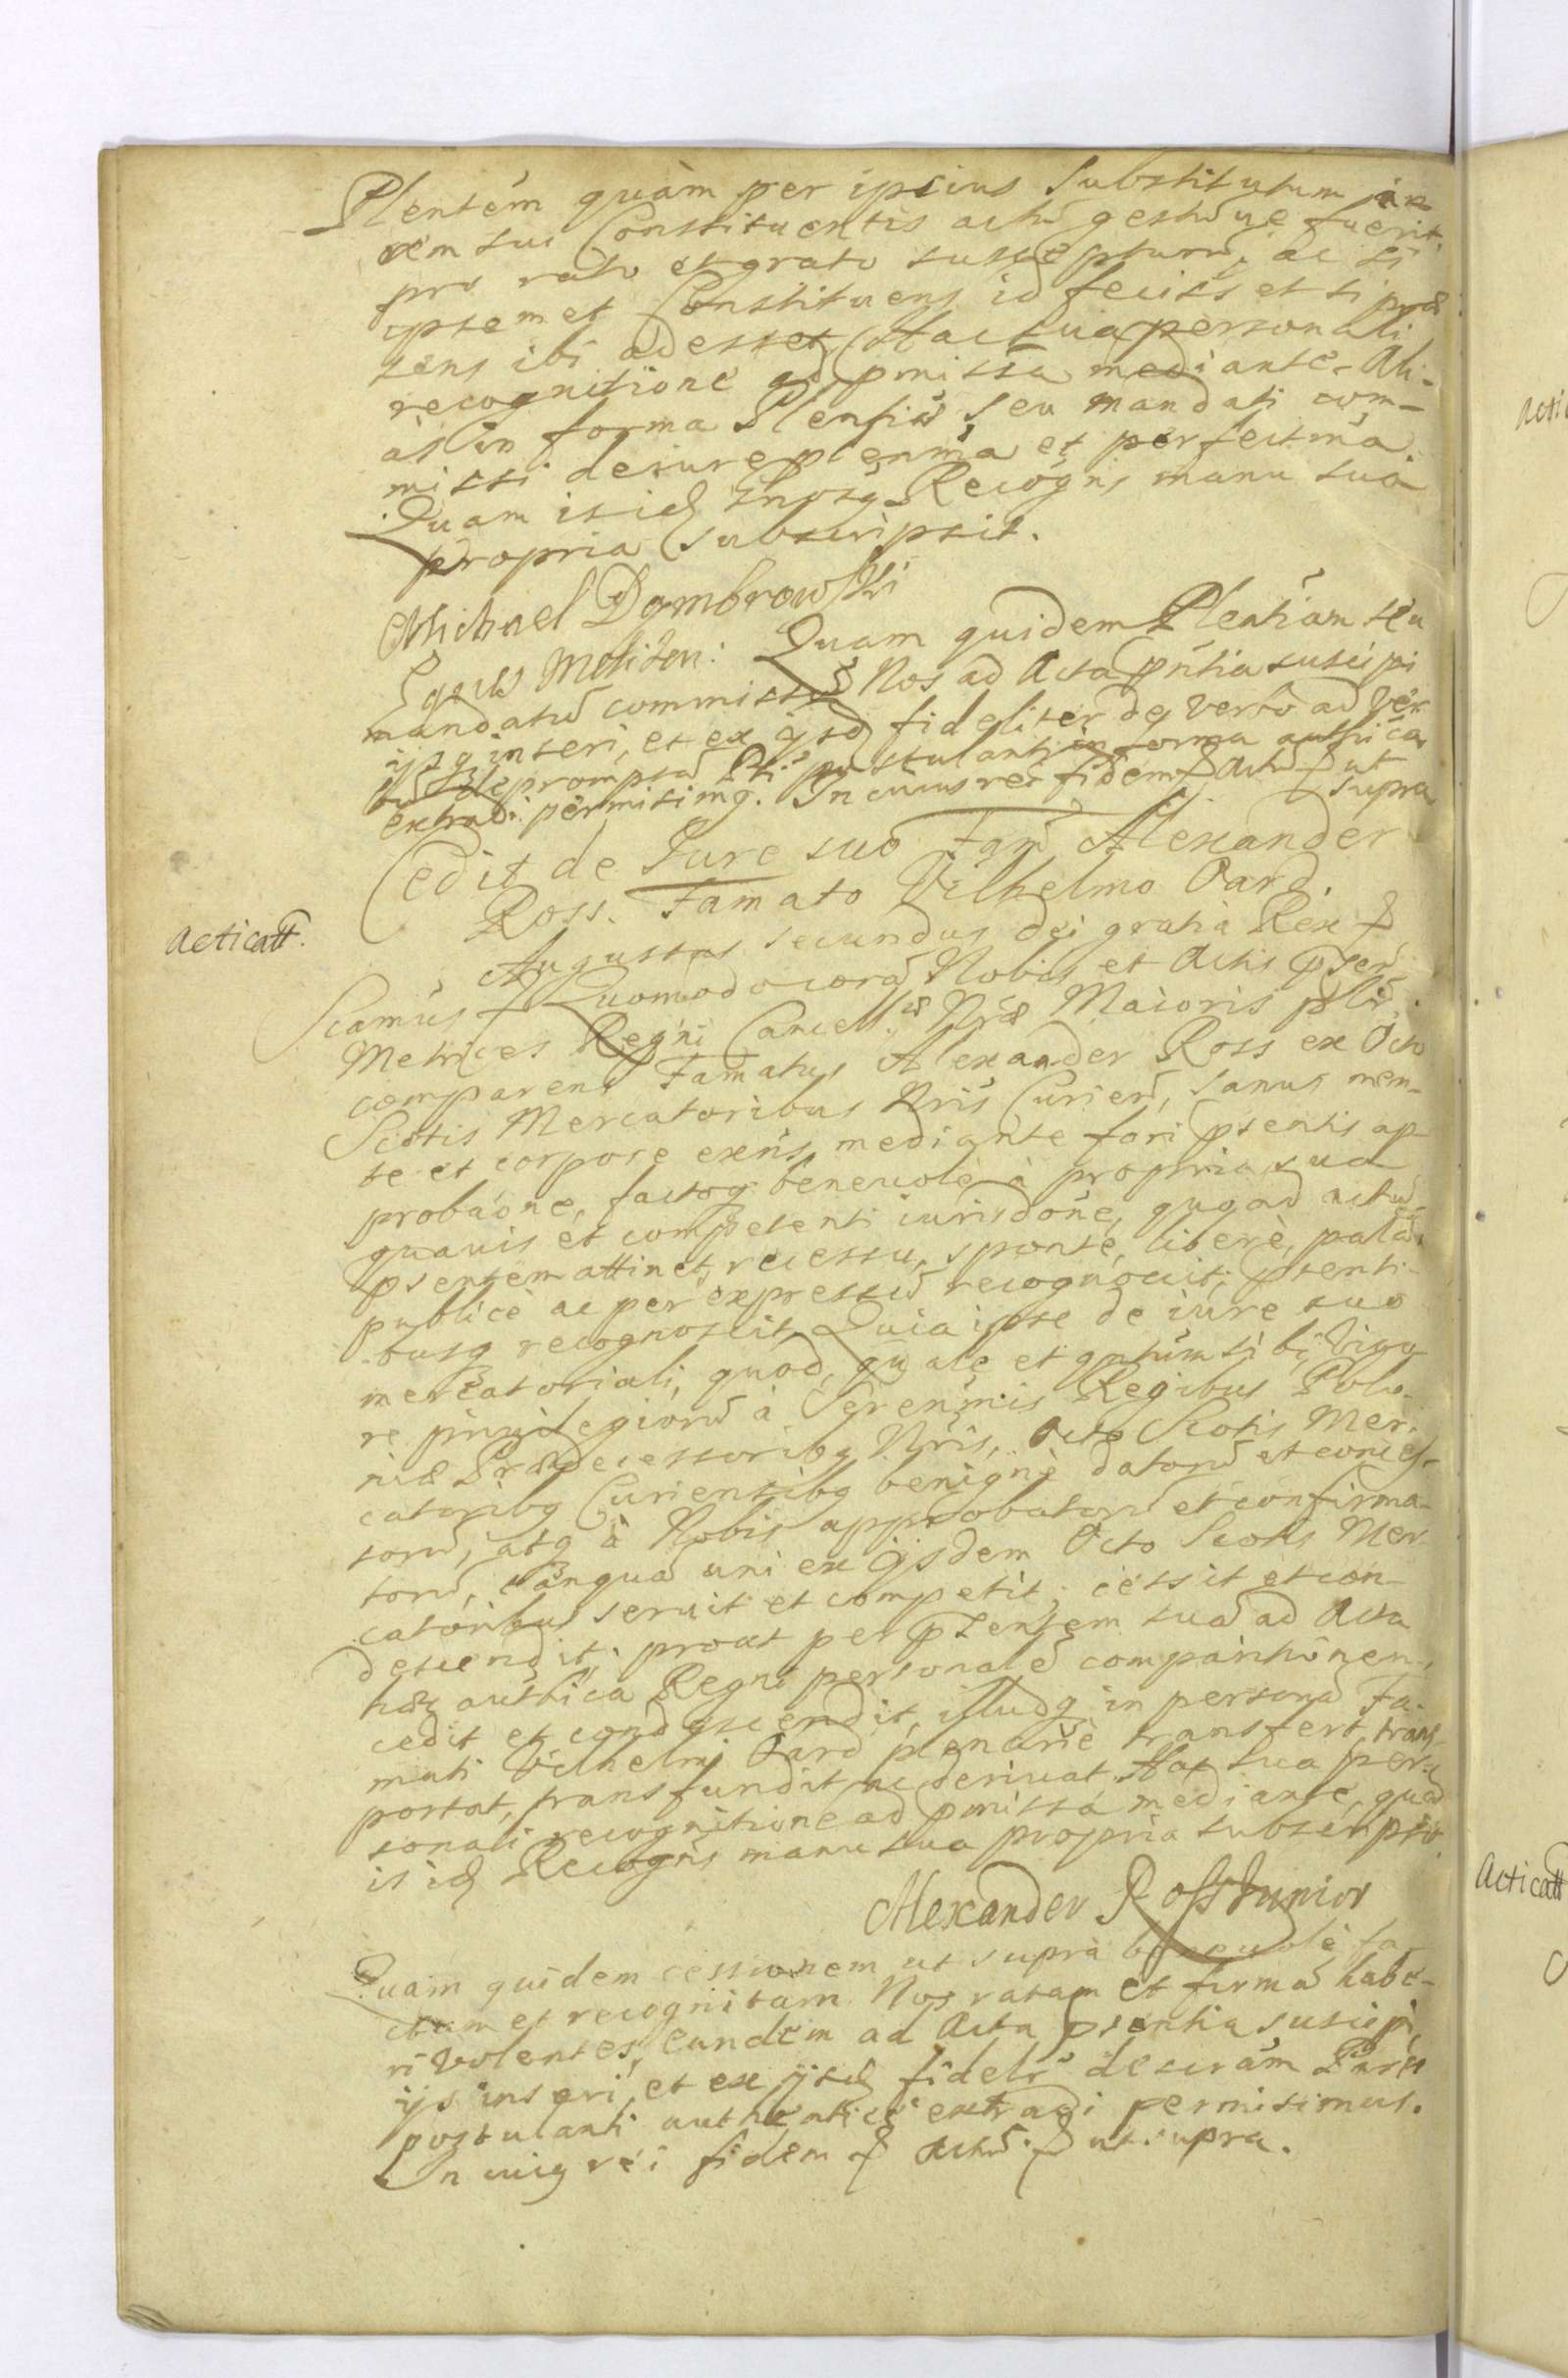 Plentem quàm per ipsius Substitutum in
rem sui Constituentis actũ gestũue fuerit,
pro rato et grato suscepturũ, ac si
ipsemet Constituens id fecisset si præ
sens ibi adesset. Hac sua personali
recognitione ad pmissa mediante. Ali-
às in forma Plentiæ seu mandati com-
missi de iure plenma et perfectma.
Quam is id Recognis manu sua
propria subscripsit.
Michael Dombrowski
Quam quidem Plentiam seu
mandatũ commissũ Nos ad Acta pntia suscipi
ijsq inseri, et ex ijsd fideliter de verbo ad ver
bũ depromptã Pti postulanti in forma authica
extradi permisimg. In cuius rei fidem Actũ ut
supra
Cedit de Jure suo Famũ Alexander
Ross. Famato Vilhelmo Oard.
Acticatt.
Augustus secundus dei gratia Rex
Significamus Quomodo corã Nobis et Actis psen
Metrices Regni Cancell. Nræ Maioris plr.
comparens Famatus Alexander Ross ex Octo
Scotis Mercatoribus Nris Curien, sanus men-
te et corpore exens, mediante fori psentis ap-
probaone, factoq beneuolè à propria sua
quauis et competenti iurisdone, quoad actũ
psentem attinet, recessu, sponte, liberè, palã
publicè ac per expressũ recognouit; psenti-
busq recognoscit, Quia ipse de iure suo
mercatoriali, quod, quale et qntum sibi vigo-
re priuilegiorũ à Serenmis Regibus Polo-
niæ Prædecessoribg Nris, Octo Scotis Mer-
catoribg Curiensibg benignè datorũ et conces-
sorũ, atq à Nobis approbatorũ et confirma-
torũ, tanquã uni ex ijsdem Octo Scotis Mer-
catoribus seruit et competit; cessit et con-
descendit; prout per psentem suã ad Acta
hæc authica Regni personalẽ comparitionem,
cedit et condescendit, illudq in personã Fa-
mati Vilhelmi Oard plenariè transfert, trans-
portat, transfundit ac deriuat. Hac sua per-
sonali recognitione ad pmissa mediante, quã
is id Recognis manu sua propria subscripsit.
Alexander Ross Junior
Quam quidem cessionem ut suprà beneuolè fa-
ctam et recognitam Nos ratam et firmã habe-
ri volentes, eandem ad Acta psentia suscipi,
ijs inseri, et ex ijsd fidelr descram Parti
postulanti authenticè extradi permisimus.
In cuig rei fidem Actũ ut supra.
Acticatt